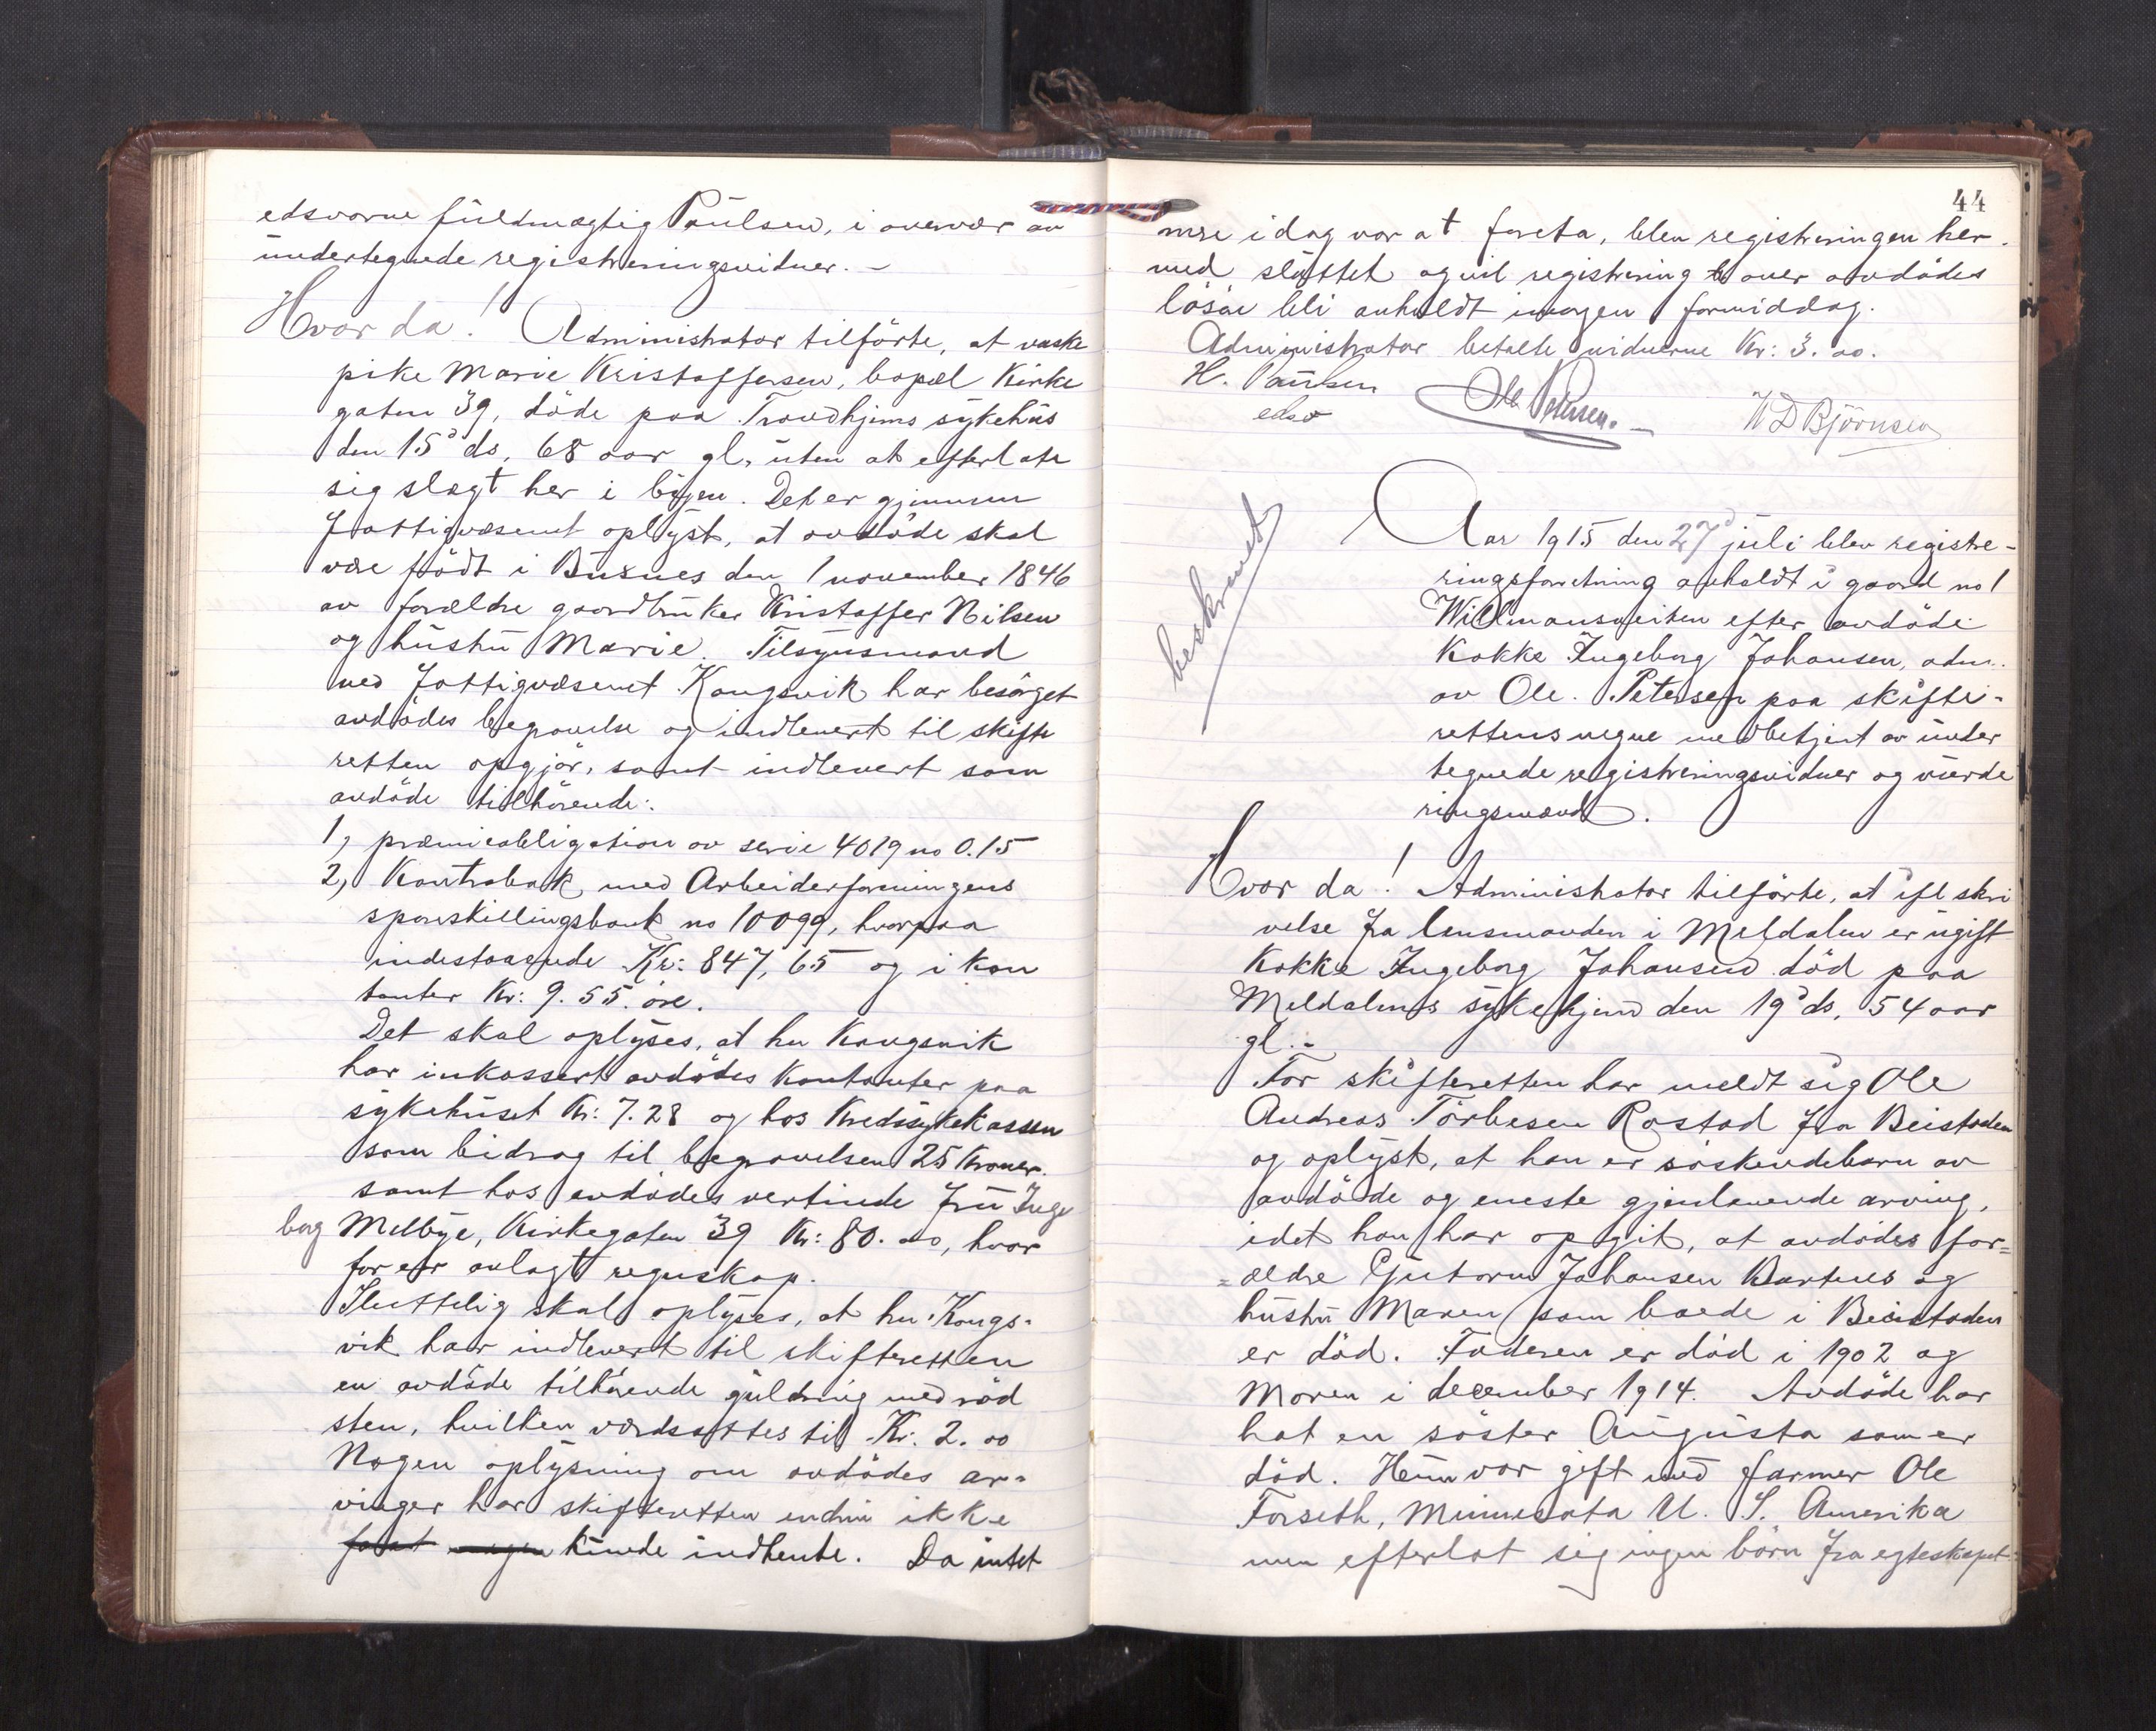 edsvorne fuldmægtig Paulsen, i overvær av
undertegnede registreringsvidner. –
Hvor da! Administrator tilførte, at vaske
pike Marie Kristoffersen, bopæl Kirke
gaten 39, døde paa Trondhjems sykehus
den 15d ds, 68 aar gl, uten at efterlate
sig slægt her i byen. Det er gjennem
Fattigvæsenet oplyst, at avdøde skal
være født i Buxnes den 1 november 1846
av forældre gaardbruker Kristoffer Nilsen
og hustru Marie. Tilsynsmand
ved Fattigvæsenet Kongsvik har besørget
avdødes begravelse og indlevert til skifte
retten opgjør, samt indlevert som
avdøde tilhørende:
1, præmieobligation av serie 4019 no 0.15
2, Kontrabok med Arbeiderforeningens
spareskillingsbank no 10099, hvorpaa
indestaaende Kr: 847,65 og i kon
tanter Kr: 9.55 øre.
Det skal oplyses, at hr Kongsvik
har inkassert avdødes kontanter paa
sykehuset Kr: 7.28 og hos Kredssykekassen
som bidrag til begravelsen 25 kroner.
samt hos avdødes vertinde fru Inge
borg Melbye, Kirkegaten 39 Kr: 80.00, hvor
for er avlagt regnskap.
Sluttelig skal oplyses, at hr Kongs-
vik har indlevert til skifteretten
en avdøde tilhørende guldring med rød
sten, hvilken værdsattes til Kr. 2.00
Nogen oplysning om avdødes ar-
vinger har skifteretten endnu ikke
kunde indhente. Da intet
44
mere idag var at foreta, blev registreringen her-
med sluttet og vil registrering over avdødes
løsøre bli anholdt imorgen formiddag.
Administrator betalte vidnerne Kr: 3.00.
H. Paulsen Ole Petersen. – W D Bjørnsen
edsv
beskrevet
Aar 1915 den 27d juli blev registre-
ringsforretning anholdt i gaard no 1
Wildmansveiten efter avdøde
Kokke Ingeborg Johansen, adm.
av Ole. Petersen paa skifte-
rettens vegne medbetjent av under
tegnede registreringsvidner og vurde
ringsmænd.
Hvor da! Administrator tilførte, at ifl skri
velse fra lensmanden i Meldalen er ugift
Kokke Ingeborg Johansen død paa
Meldalens sykehjem den 19d ds, 54 aar
gl. –
For skifteretten har meldt sig Ole
Andreas Torbesen Rostad fra Beistaden
og oplyst, at han er søskendebarn av
avdøde og eneste gjenlevende arving,
idet han har opgit, at avdødes for=
=ældre Gutorm Johansen Bartnes og
hustru Maren som boede i Beistaden
er død. Faderen er død i 1902 og
Moren i december 1914. Avdøde har
hat en søster Augusta som er
død. Hun var gift med farmer Ole
Forseth, Minnesota U. S. Amerika
men efterlot sig ingen børn fra egteskapet